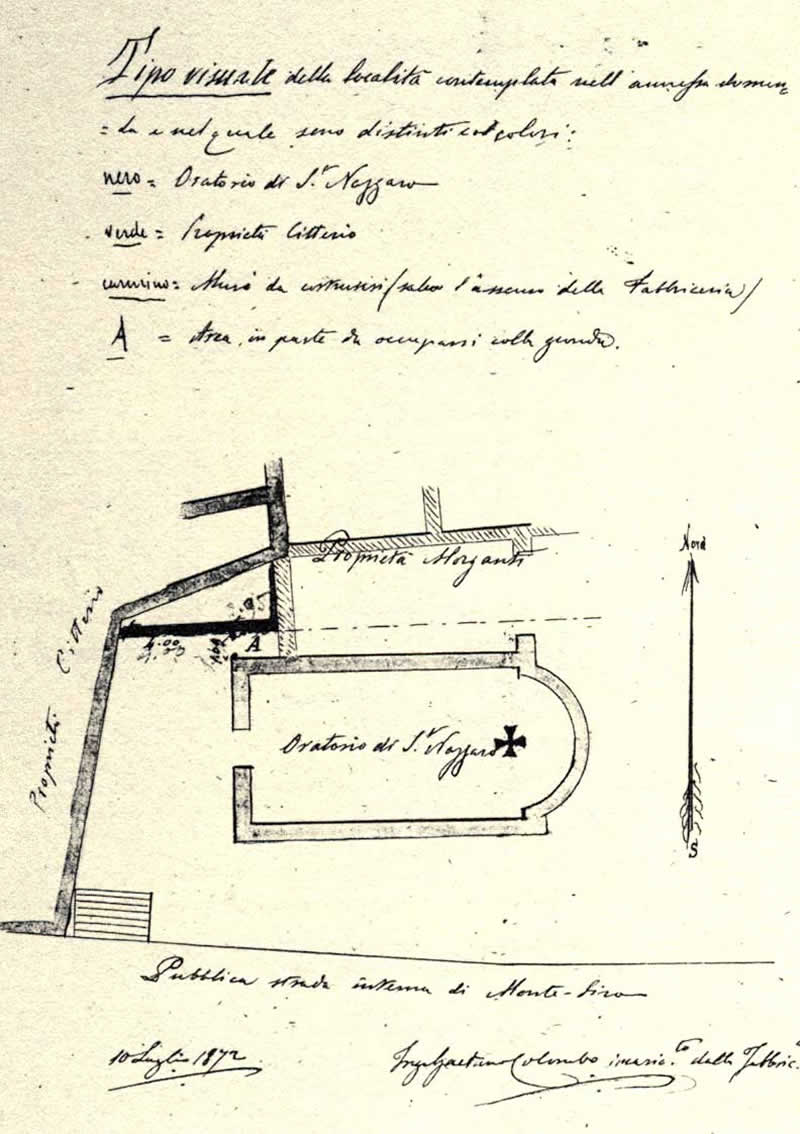 Tipo visuale della località contemplata nell'annessa doman=
=da e nel quale sono distinti coi colori:
nero = Oratorio di S.r Nazzaro
verde = Proprietà Citterio
carmino = Muro da costruirsi (salvo l'assenso della Fabbriceria)
A = Area in parte da occuparsi colla gronda.
Proprietà Morganti
Nord
Proprietà Citterio
4.00
A
Oratorio di S.r Nazzaro
S
Pubblica strada interna di Monte-Siro
10 Luglio 1872
Ing. Gaetano Colombo incaric.to dalla Fabbric.a